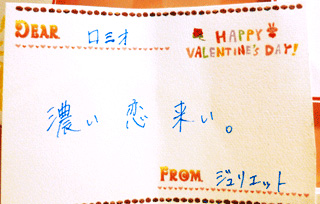 DEAR ロミオ
HAPPY
VALENTINE'S DAY!
濃い 恋 来い。
FROM ジュリエット